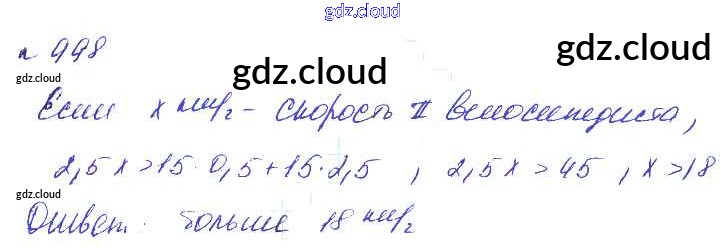 gdz.cloud
№ 998
gdz.cloud
gdz.cloud
gdz.cloud
Если x км/ч - скорость II велосипедиста,
2,5x > 15 · 0,5 + 15 · 2,5 , 2,5x > 45 , x > 18
gdz.cloud
Ответ: больше 18 км/ч